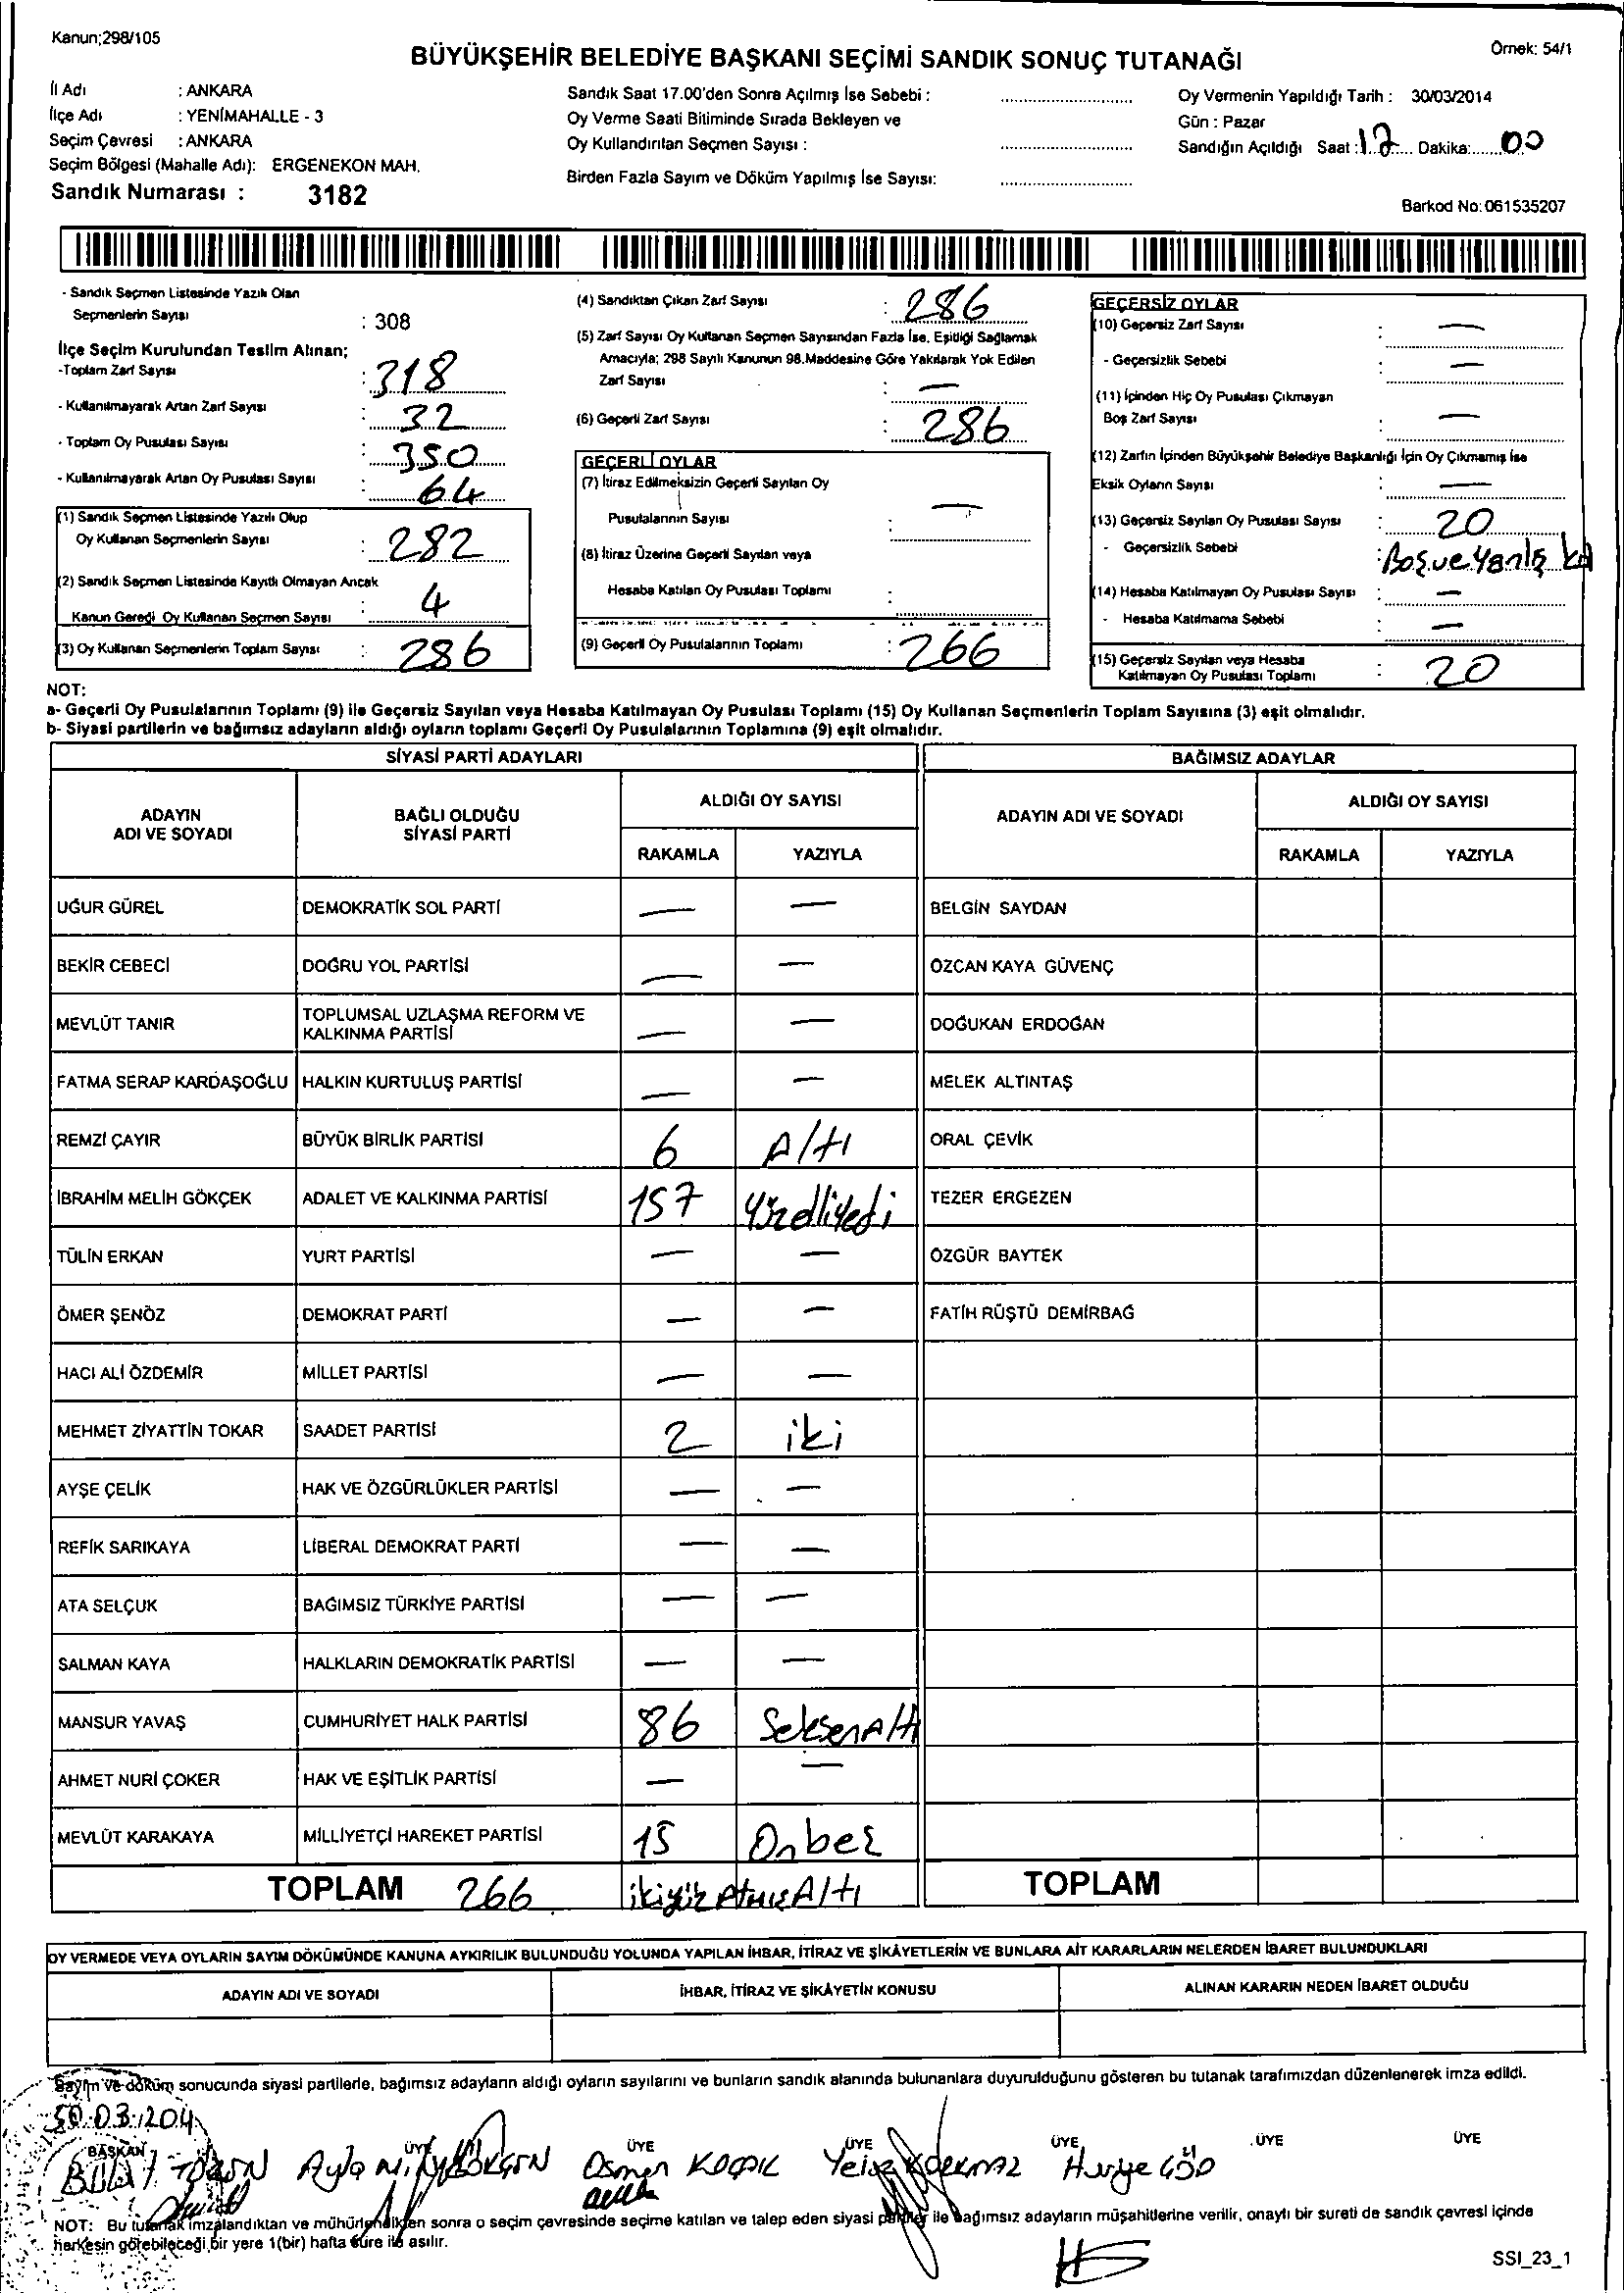 Kanun;298/105
Örnek: 54/1
BÜYÜKŞEHİR BELEDİYE BAŞKANI SEÇİMİ SANDIK SONUÇ TUTANAĞI
İl Adı : ANKARA
İlçe Adı : YENİMAHALLE - 3
Seçim Çevresi : ANKARA
Seçim Bölgesi (Mahalle Adı): ERGENEKON MAH.
Sandık Numarası : 3182
Sandık Saat 17.00'den Sonra Açılmış İse Sebebi :
Oy Verme Saati Bitiminde Sırada Bekleyen ve
Oy Kullandırılan Seçmen Sayısı :
Birden Fazla Sayım ve Döküm Yapılmış İse Sayısı:
Oy Vermenin Yapıldığı Tarih : 30/03/2014
Gün : Pazar
Sandığın Açıldığı Saat : 17 Dakika: 00
Barkod No: 061535207
- Sandık Seçmen Listesinde Yazılı Olan
Seçmenlerin Sayısı : 308
İlçe Seçim Kurulundan Teslim Alınan;
-Toplam Zarf Sayısı : 318
- Kullanılmayarak Artan Zarf Sayısı : 32
- Toplam Oy Pusulası Sayısı : 350
- Kullanılmayarak Artan Oy Pusulası Sayısı : 64
(1) Sandık Seçmen Listesinde Yazılı Olup
Oy Kullanan Seçmenlerin Sayısı : 282
(2) Sandık Seçmen Listesinde Kayıtlı Olmayan Ancak
Kanun Gereği Oy Kullanan Seçmen Sayısı : 4
(3) Oy Kullanan Seçmenlerin Toplam Sayısı : 286
(4) Sandıktan Çıkan Zarf Sayısı : 286
(5) Zarf Sayısı Oy Kullanan Seçmen Sayısından Fazla İse, Eşitliği Sağlamak
Amacıyla; 298 Sayılı Kanunun 98.Maddesine Göre Yakılarak Yok Edilen
Zarf Sayısı : —
(6) Geçerli Zarf Sayısı : 286
GEÇERLİ OYLAR
(7) İtiraz Edilmeksizin Geçerli Sayılan Oy
Pusulalarının Sayısı : —
(8) İtiraz Üzerine Geçerli Sayılan veya
Hesaba Katılan Oy Pusulası Toplamı :
(9) Geçerli Oy Pusulalarının Toplamı : 266
GEÇERSİZ OYLAR
(10) Geçersiz Zarf Sayısı : —
- Geçersizlik Sebebi : —
(11) İçinden Hiç Oy Pusulası Çıkmayan
Boş Zarf Sayısı : —
(12) Zarfın İçinden Büyükşehir Belediye Başkanlığı İçin Oy Çıkmamış İse
Eksik Oyların Sayısı : —
(13) Geçersiz Sayılan Oy Pusulası Sayısı : 20
- Geçersizlik Sebebi : Boş ve Yanlış
(14) Hesaba Katılmayan Oy Pusulası Sayısı : —
- Hesaba Katılmama Sebebi : —
(15) Geçersiz Sayılan veya Hesaba
Katılmayan Oy Pusulası Toplamı : 20
NOT:
a- Geçerli Oy Pusulalarının Toplamı (9) ile Geçersiz Sayılan veya Hesaba Katılmayan Oy Pusulası Toplamı (15) Oy Kullanan Seçmenlerin Toplam Sayısına (3) eşit olmalıdır.
b- Siyasi partilerin ve bağımsız adayların aldığı oyların toplamı Geçerli Oy Pusulalarının Toplamına (9) eşit olmalıdır.
SİYASİ PARTİ ADAYLARI
BAĞIMSIZ ADAYLAR
ADAYIN
ADI VE SOYADI
BAĞLI OLDUĞU
SİYASİ PARTİ
ALDIĞI OY SAYISI
RAKAMLA YAZIYLA
ADAYIN ADI VE SOYADI
ALDIĞI OY SAYISI
RAKAMLA YAZIYLA
UĞUR GÜREL DEMOKRATİK SOL PARTİ — — BELGİN SAYDAN
BEKİR CEBECİ DOĞRU YOL PARTİSİ — — ÖZCAN KAYA GÜVENÇ
MEVLÜT TANIR TOPLUMSAL UZLAŞMA REFORM VE
KALKINMA PARTİSİ — — DOĞUKAN ERDOĞAN
FATMA SERAP KARDAŞOĞLU HALKIN KURTULUŞ PARTİSİ — — MELEK ALTINTAŞ
REMZİ ÇAYIR BÜYÜK BİRLİK PARTİSİ 6 Altı ORAL ÇEVİK
İBRAHİM MELİH GÖKÇEK ADALET VE KALKINMA PARTİSİ 157 Yüzelliyedi TEZER ERGEZEN
TÜLİN ERKAN YURT PARTİSİ — — ÖZGÜR BAYTEK
ÖMER ŞENÖZ DEMOKRAT PARTİ — — FATİH RÜŞTÜ DEMİRBAĞ
HACI ALİ ÖZDEMİR MİLLET PARTİSİ — —
MEHMET ZİYATTİN TOKAR SAADET PARTİSİ 2 iki
AYŞE ÇELİK HAK VE ÖZGÜRLÜKLER PARTİSİ — —
REFİK SARIKAYA LİBERAL DEMOKRAT PARTİ — —
ATA SELÇUK BAĞIMSIZ TÜRKİYE PARTİSİ — —
SALMAN KAYA HALKLARIN DEMOKRATİK PARTİSİ — —
MANSUR YAVAŞ CUMHURİYET HALK PARTİSİ 86 SeksenAltı
AHMET NURİ ÇOKER HAK VE EŞİTLİK PARTİSİ — —
MEVLÜT KARAKAYA MİLLİYETÇİ HAREKET PARTİSİ 15 Onbeş
TOPLAM 266 ikiyüz AtmışAltı TOPLAM
OY VERMEDE VEYA OYLARIN SAYIM DÖKÜMÜNDE KANUNA AYKIRILIK BULUNDUĞU YOLUNDA YAPILAN İHBAR, İTİRAZ VE ŞİKÂYETLERİN VE BUNLARA AİT KARARLARIN NELERDEN İBARET BULUNDUKLARI
ADAYIN ADI VE SOYADI İHBAR, İTİRAZ VE ŞİKÂYETİN KONUSU ALINAN KARARIN NEDEN İBARET OLDUĞU
Sayım ve döküm sonucunda siyasi partilerle, bağımsız adayların aldığı oyların sayılarını ve bunların sandık alanında bulunanlara duyurulduğunu gösteren bu tutanak tarafımızdan düzenlenerek imza edildi.
30.03.204
BAŞKAN ÜYE ÜYE ÜYE ÜYE ÜYE ÜYE
Ayla Osman KOÇAK KORKMAZ
NOT: Bu tutanak imzalandıktan ve mühürlendikten sonra o seçim çevresinde seçime katılan ve talep eden siyasi partiler ile bağımsız adayların müşahitlerine verilir, onaylı bir sureti de sandık çevresi içinde
herkesin görebileceği bir yere 1(bir) hafta süre ile asılır.
SSI_23_1